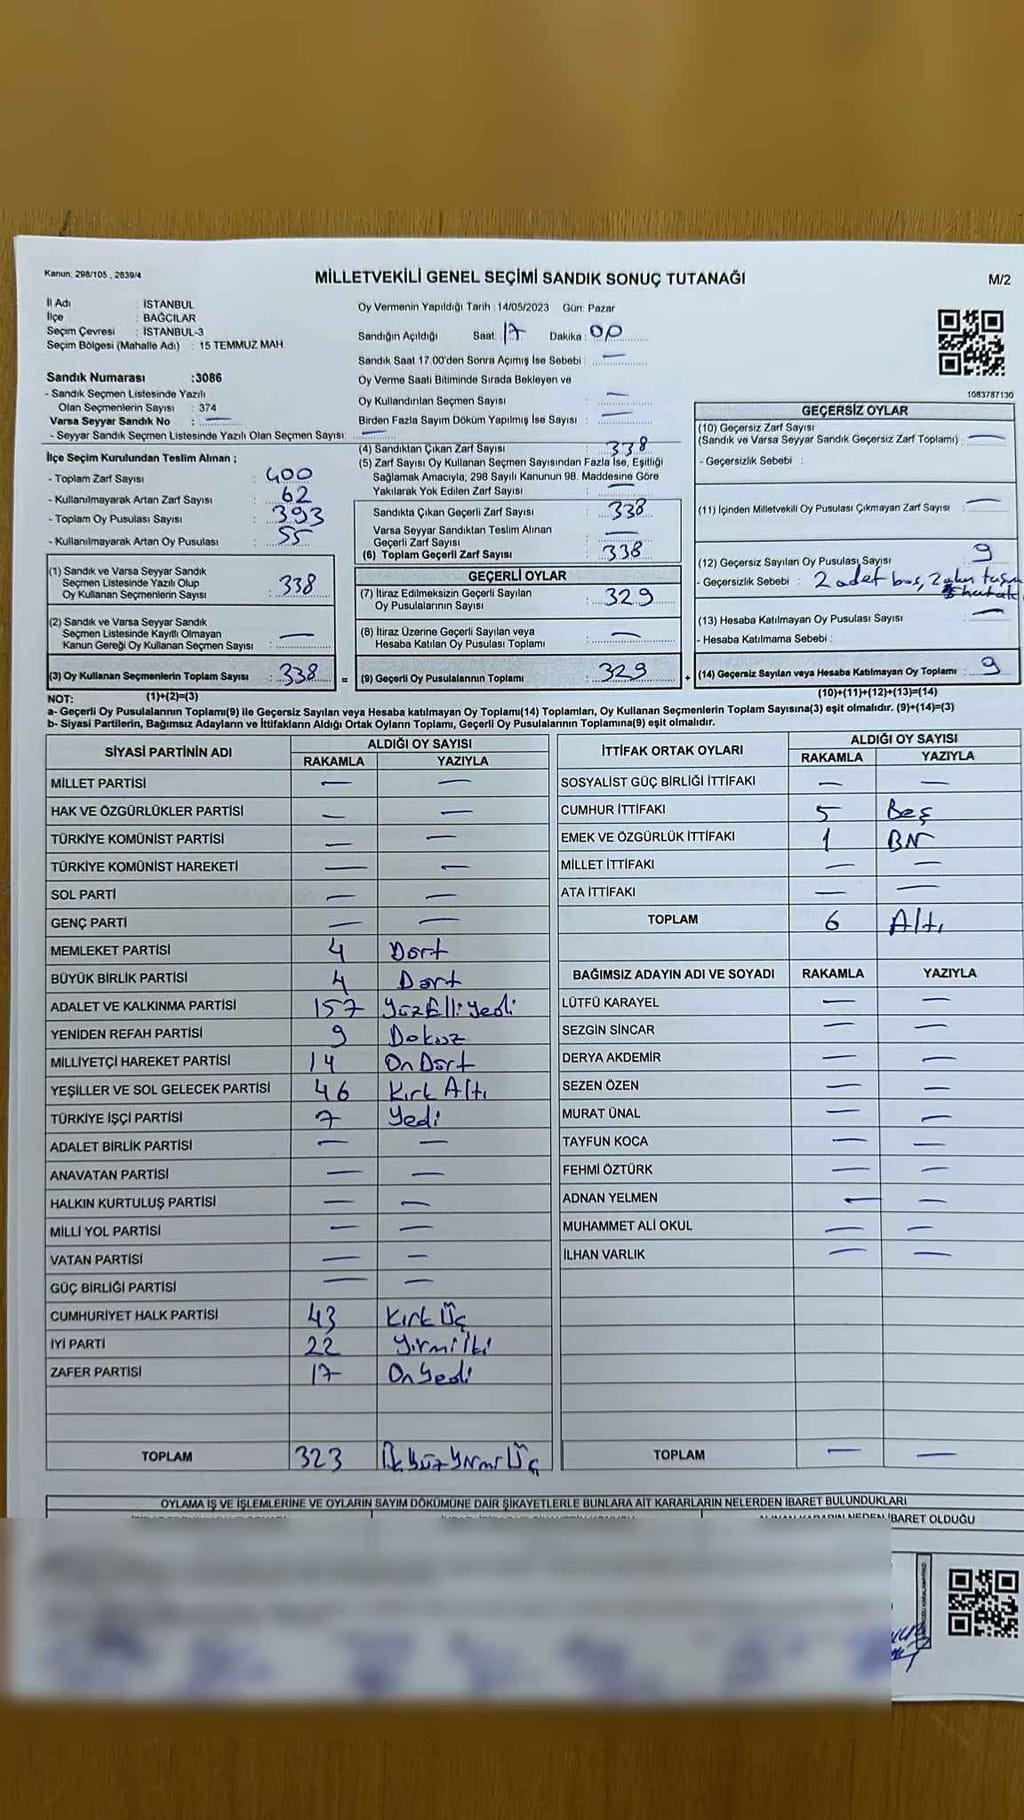 Kanun: 298/105 , 2839/4
MİLLETVEKİLİ GENEL SEÇİMİ SANDIK SONUÇ TUTANAĞI
M/2
İl Adı : İSTANBUL
İlçe : BAĞCILAR
Seçim Çevresi : İSTANBUL-3
Seçim Bölgesi (Mahalle Adı) : 15 TEMMUZ MAH
Oy Vermenin Yapıldığı Tarih : 14/05/2023 Gün: Pazar
Sandığın Açıldığı Saat: 17 Dakika : 00
Sandık Saat 17.00'den Sonra Açımış İse Sebebi : —
Oy Verme Saati Bitiminde Sırada Bekleyen ve
Oy Kullandırılan Seçmen Sayısı : —
Birden Fazla Sayım Döküm Yapılmış İse Sayısı : —
1083787130
Sandık Numarası :3086
- Sandık Seçmen Listesinde Yazılı
Olan Seçmenlerin Sayısı : 374
Varsa Seyyar Sandık No : —
- Seyyar Sandık Seçmen Listesinde Yazılı Olan Seçmen Sayısı: —
İlçe Seçim Kurulundan Teslim Alınan ;
- Toplam Zarf Sayısı : 400
- Kullanılmayarak Artan Zarf Sayısı : 62
- Toplam Oy Pusulası Sayısı : 393
- Kullanılmayarak Artan Oy Pusulası : 55
(1) Sandık ve Varsa Seyyar Sandık
Seçmen Listesinde Yazılı Olup
Oy Kullanan Seçmenlerin Sayısı : 338
(2) Sandık ve Varsa Seyyar Sandık
Seçmen Listesinde Kayıtlı Olmayan
Kanun Gereği Oy Kullanan Seçmen Sayısı : —
(3) Oy Kullanan Seçmenlerin Toplam Sayısı : 338 =
(4) Sandıktan Çıkan Zarf Sayısı : 338
(5) Zarf Sayısı Oy Kullanan Seçmen Sayısından Fazla İse, Eşitliği
Sağlamak Amacıyla, 298 Sayılı Kanunun 98. Maddesine Göre
Yakılarak Yok Edilen Zarf Sayısı : —
Sandıkta Çıkan Geçerli Zarf Sayısı : 338
Varsa Seyyar Sandıktan Teslim Alınan
Geçerli Zarf Sayısı : —
(6) Toplam Geçerli Zarf Sayısı : 338
GEÇERLİ OYLAR
(7) İtiraz Edilmeksizin Geçerli Sayılan
Oy Pusulalarının Sayısı : 329
(8) İtiraz Üzerine Geçerli Sayılan veya
Hesaba Katılan Oy Pusulası Toplamı : —
(9) Geçerli Oy Pusulalarının Toplamı : 329 +
GEÇERSİZ OYLAR
(10) Geçersiz Zarf Sayısı
(Sandık ve Varsa Seyyar Sandık Geçersiz Zarf Toplamı) : —
- Geçersizlik Sebebi :
(11) İçinden Milletvekili Oy Pusulası Çıkmayan Zarf Sayısı : —
(12) Geçersiz Sayılan Oy Pusulası Sayısı : 9
- Geçersizlik Sebebi : 2 adet boş, 2
(13) Hesaba Katılmayan Oy Pusulası Sayısı : —
- Hesaba Katılmama Sebebi :
(14) Geçersiz Sayılan veya Hesaba Katılmayan Oy Toplamı : 9
NOT: (1)+(2)=(3)
(10)+(11)+(12)+(13)=(14)
a- Geçerli Oy Pusulalarının Toplamı(9) ile Geçersiz Sayılan veya Hesaba katılmayan Oy Toplamı(14) Toplamları, Oy Kullanan Seçmenlerin Toplam Sayısına(3) eşit olmalıdır. (9)+(14)=(3)
b- Siyasi Partilerin, Bağımsız Adayların ve İttifakların Aldığı Ortak Oyların Toplamı, Geçerli Oy Pusulalarının Toplamına(9) eşit olmalıdır.
SİYASİ PARTİNİN ADI ALDIĞI OY SAYISI
RAKAMLA YAZIYLA
MİLLET PARTİSİ — —
HAK VE ÖZGÜRLÜKLER PARTİSİ — —
TÜRKİYE KOMÜNİST PARTİSİ — —
TÜRKİYE KOMÜNİST HAREKETİ — —
SOL PARTİ — —
GENÇ PARTİ — —
MEMLEKET PARTİSİ 4 Dört
BÜYÜK BİRLİK PARTİSİ 4 Dört
ADALET VE KALKINMA PARTİSİ 157 YüzElliYedi
YENİDEN REFAH PARTİSİ 9 Dokuz
MİLLİYETÇİ HAREKET PARTİSİ 14 OnDört
YEŞİLLER VE SOL GELECEK PARTİSİ 46 Kırk Altı
TÜRKİYE İŞÇİ PARTİSİ 7 Yedi
ADALET BİRLİK PARTİSİ — —
ANAVATAN PARTİSİ — —
HALKIN KURTULUŞ PARTİSİ — —
MİLLİ YOL PARTİSİ — —
VATAN PARTİSİ — —
GÜÇ BİRLİĞİ PARTİSİ — —
CUMHURİYET HALK PARTİSİ 43 Kırk Üç
İYİ PARTİ 22 Yirmi İki
ZAFER PARTİSİ 17 OnYedi
TOPLAM 323 ÜçYüzYirmiÜç
İTTİFAK ORTAK OYLARI ALDIĞI OY SAYISI
RAKAMLA YAZIYLA
SOSYALİST GÜÇ BİRLİĞİ İTTİFAKI — —
CUMHUR İTTİFAKI 5 Beş
EMEK VE ÖZGÜRLÜK İTTİFAKI 1 BİR
MİLLET İTTİFAKI — —
ATA İTTİFAKI — —
TOPLAM 6 Altı
BAĞIMSIZ ADAYIN ADI VE SOYADI RAKAMLA YAZIYLA
LÜTFÜ KARAYEL — —
SEZGİN SİNCAR — —
DERYA AKDEMİR — —
SEZEN ÖZEN — —
MURAT ÜNAL — —
TAYFUN KOCA — —
FEHMİ ÖZTÜRK — —
ADNAN YELMEN — —
MUHAMMET ALİ OKUL — —
İLHAN VARLIK — —
TOPLAM — —
OYLAMA İŞ VE İŞLEMLERİNE VE OYLARIN SAYIM DÖKÜMÜNE DAİR ŞİKAYETLERLE BUNLARA AİT KARARLARIN NELERDEN İBARET BULUNDUKLARI
İBARET OLDUĞU